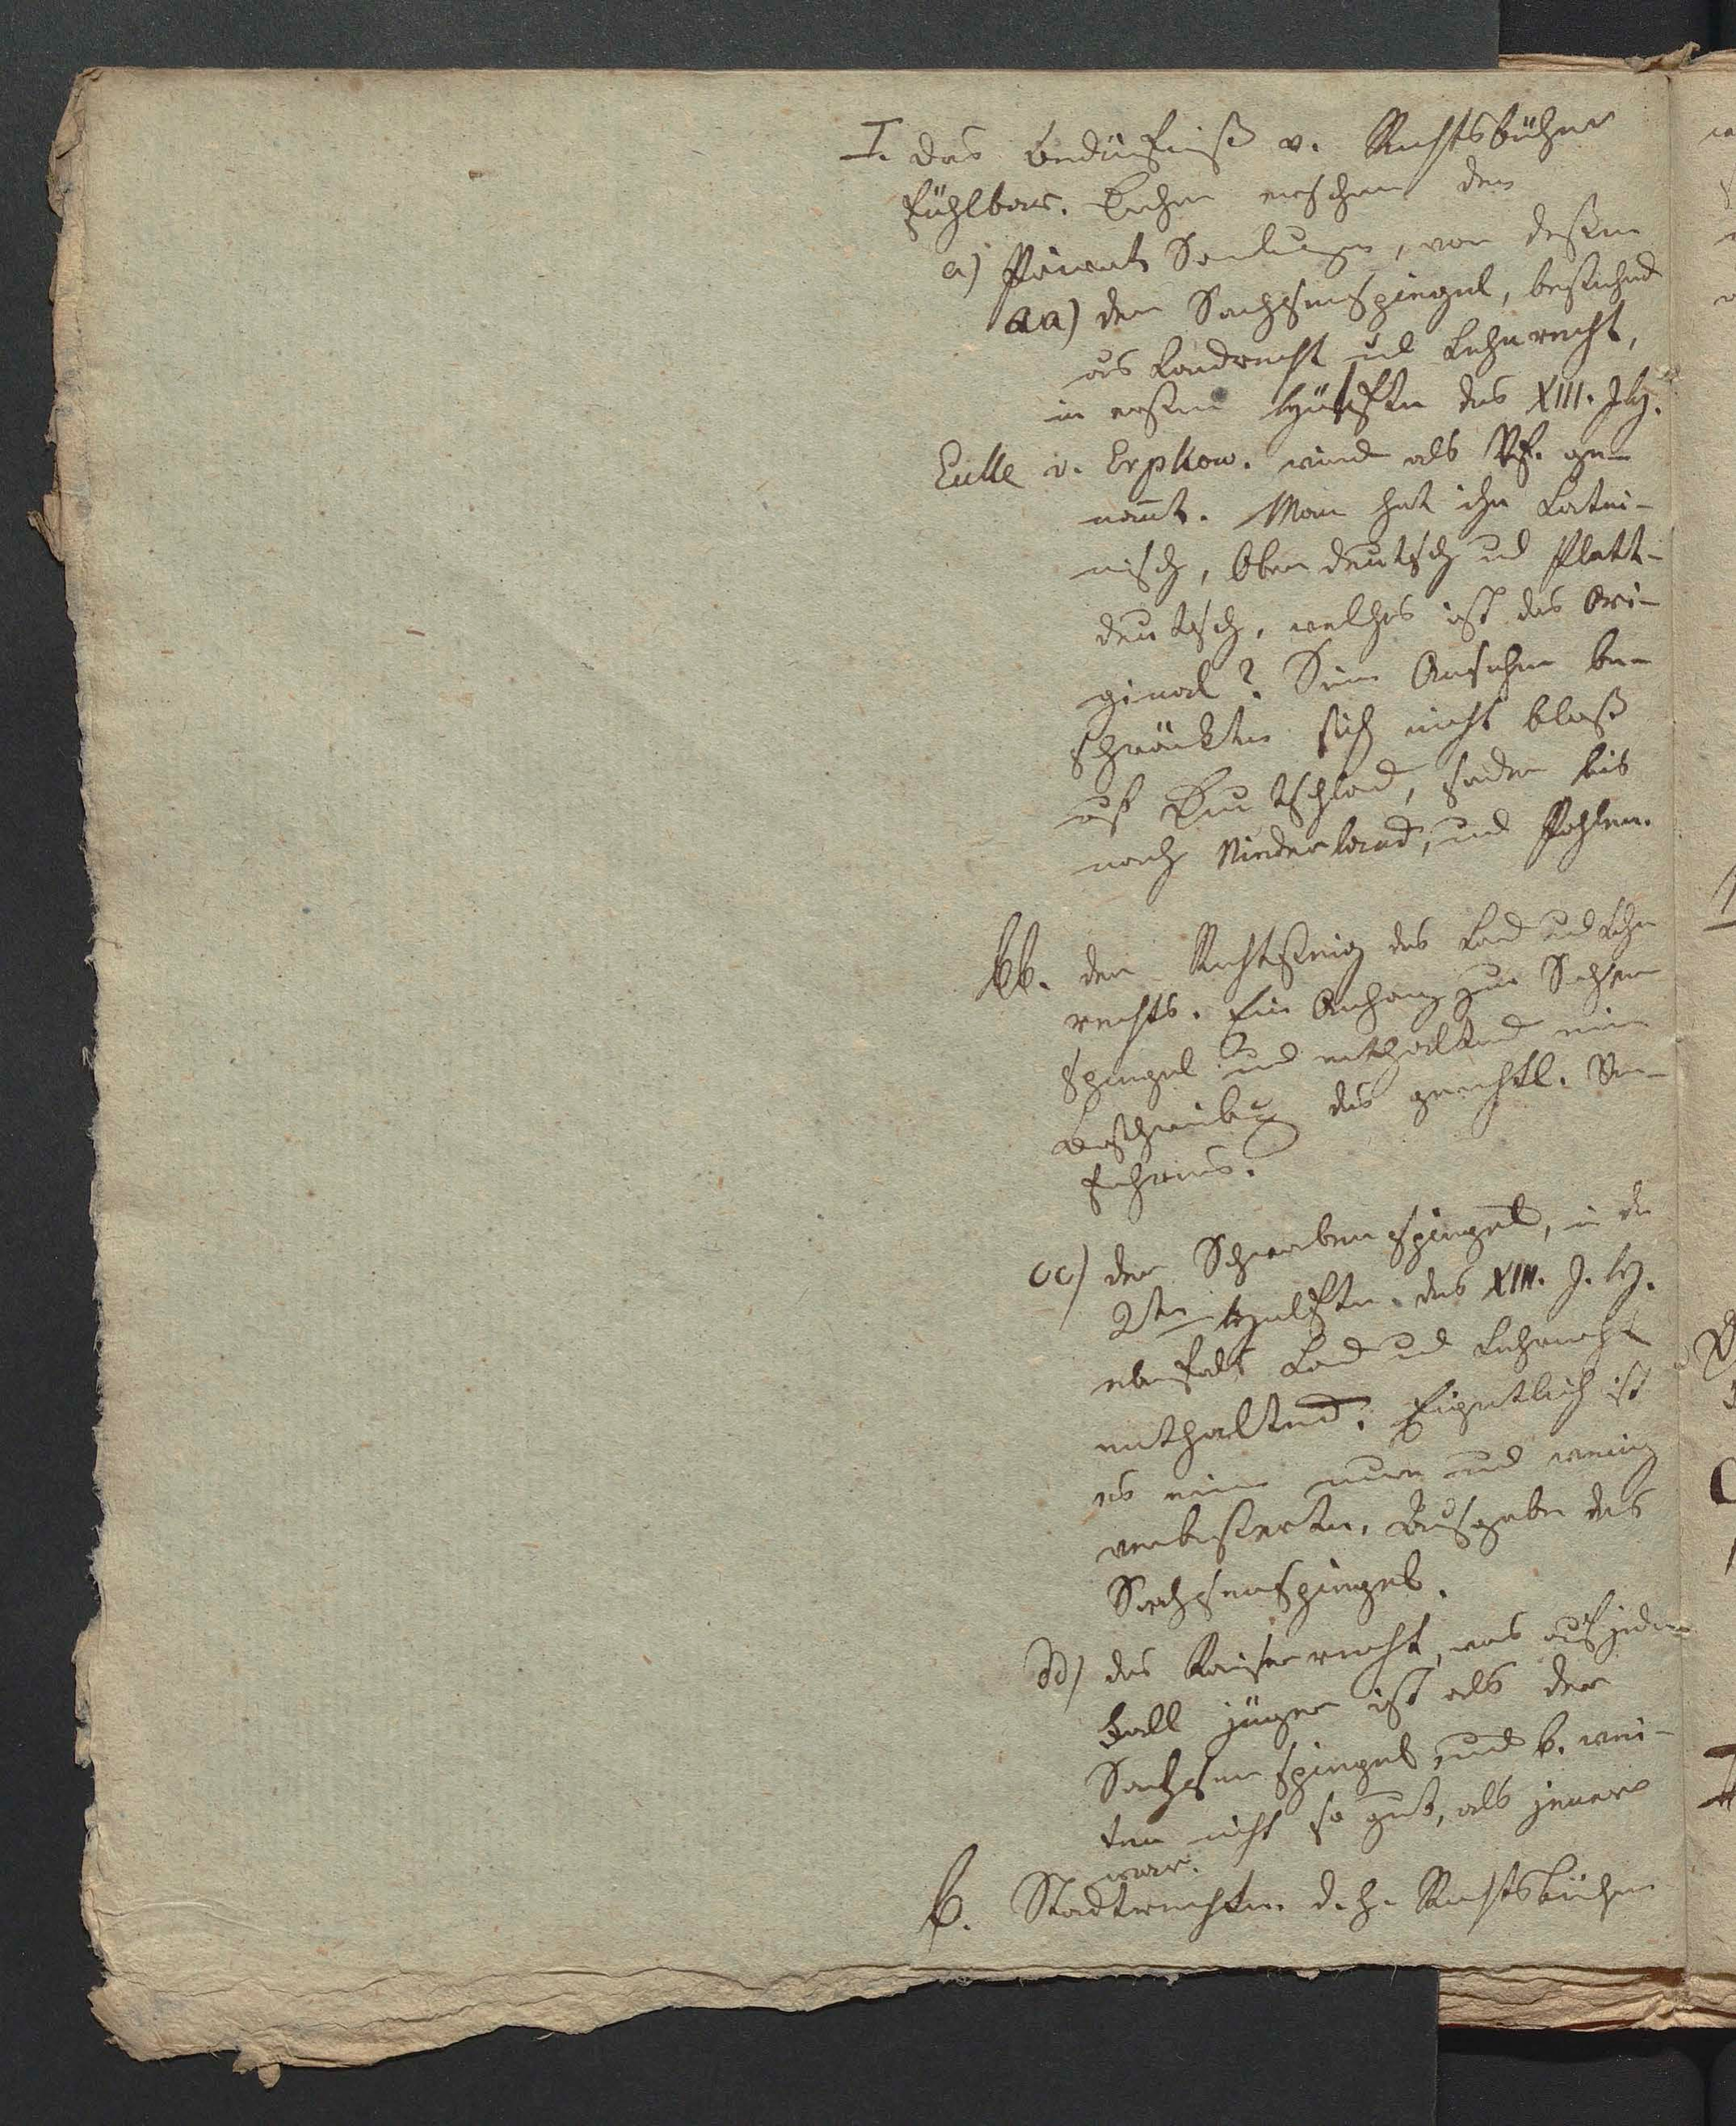 I. das Bedürfniß v. Rechtsbücher
fühlbar. Daher entstehen den
a) Privat Samlungen, von diesen
aa) der Sachsenspiegel, bestehend
aus Landrecht und Lehnrecht,
in ersten Hälfte des XIII. Jh.
Eicke v. Repkow. wird als Vf. ge-
nannt. Man hat ihn Latei-
nisch, Oberdeutsch und Platt-
deutsch, welches ist das Ori-
ginal? Sein Ansehen be-
schränkte sich nicht bloß
auf Deutschland, sondern bis
nach Niederland, und Pohlen.
bb. der Richtsteig des Land und Lehn
rechts. Ein Anhang zum Sachsen
spiegel und enthaltend eine
Beschreibung des gerichtl. Ver-
fahrens.
cc) der Schwabenspiegel, in der
2ten Hälfte des XIII. J. H.
ebenfals Land und Lehnrecht
enthaltend. Eigentlich ist
es eine neue und wenig
verbesserte Ausgabe des
Sachsenspiegels.
dd) das Kaiserrecht, was auf jeden
Fall jünger ist als der
Sachsenspiegel und b. wei-
tem nicht so gut, als jener
war.
b. Stadtrechte. d. h. Rechtsbücher